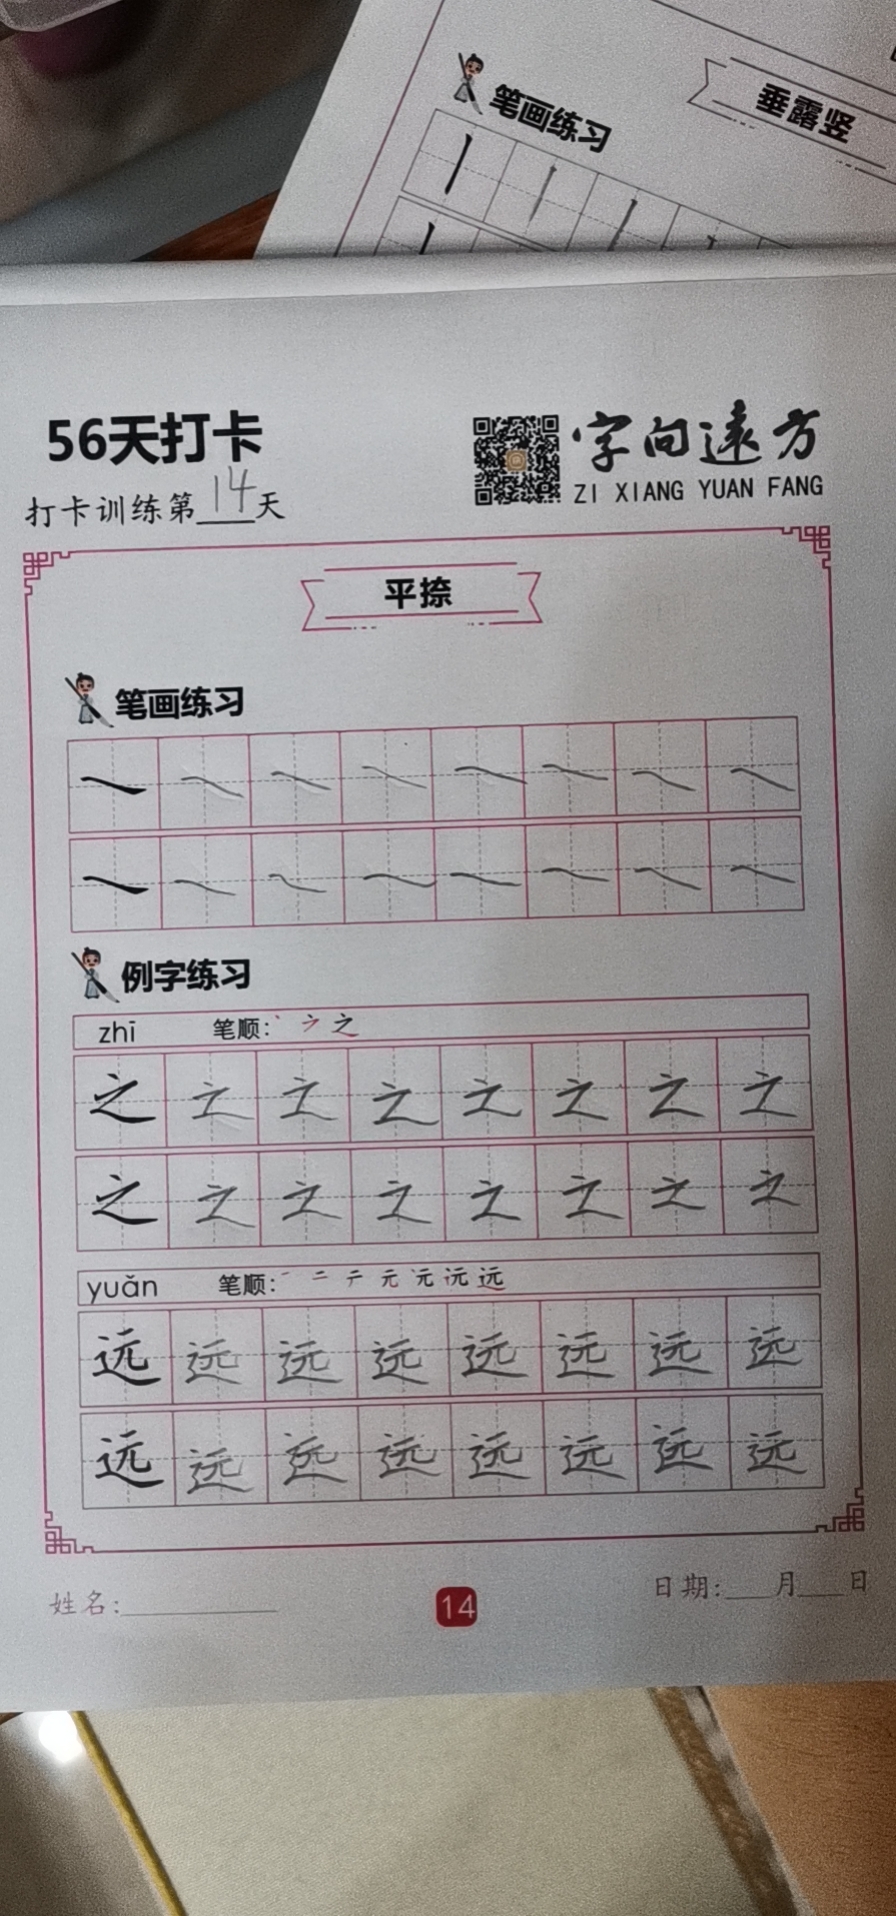 笔画练习
垂露竖
56天打卡
打卡训练第14天
字向远方
ZI XIANG YUAN FANG
平捺
笔画练习
例字练习
zhī 笔顺: 之
之 之 之 之 之 之 之 之
之 之 之 之 之 之 之 之
yuǎn 笔顺: 一 二 テ 元 元 远 远
远 远 远 远 远 远 远 远
远 远 远 远 远 远 远 远
姓名:
14
日期: 月 日